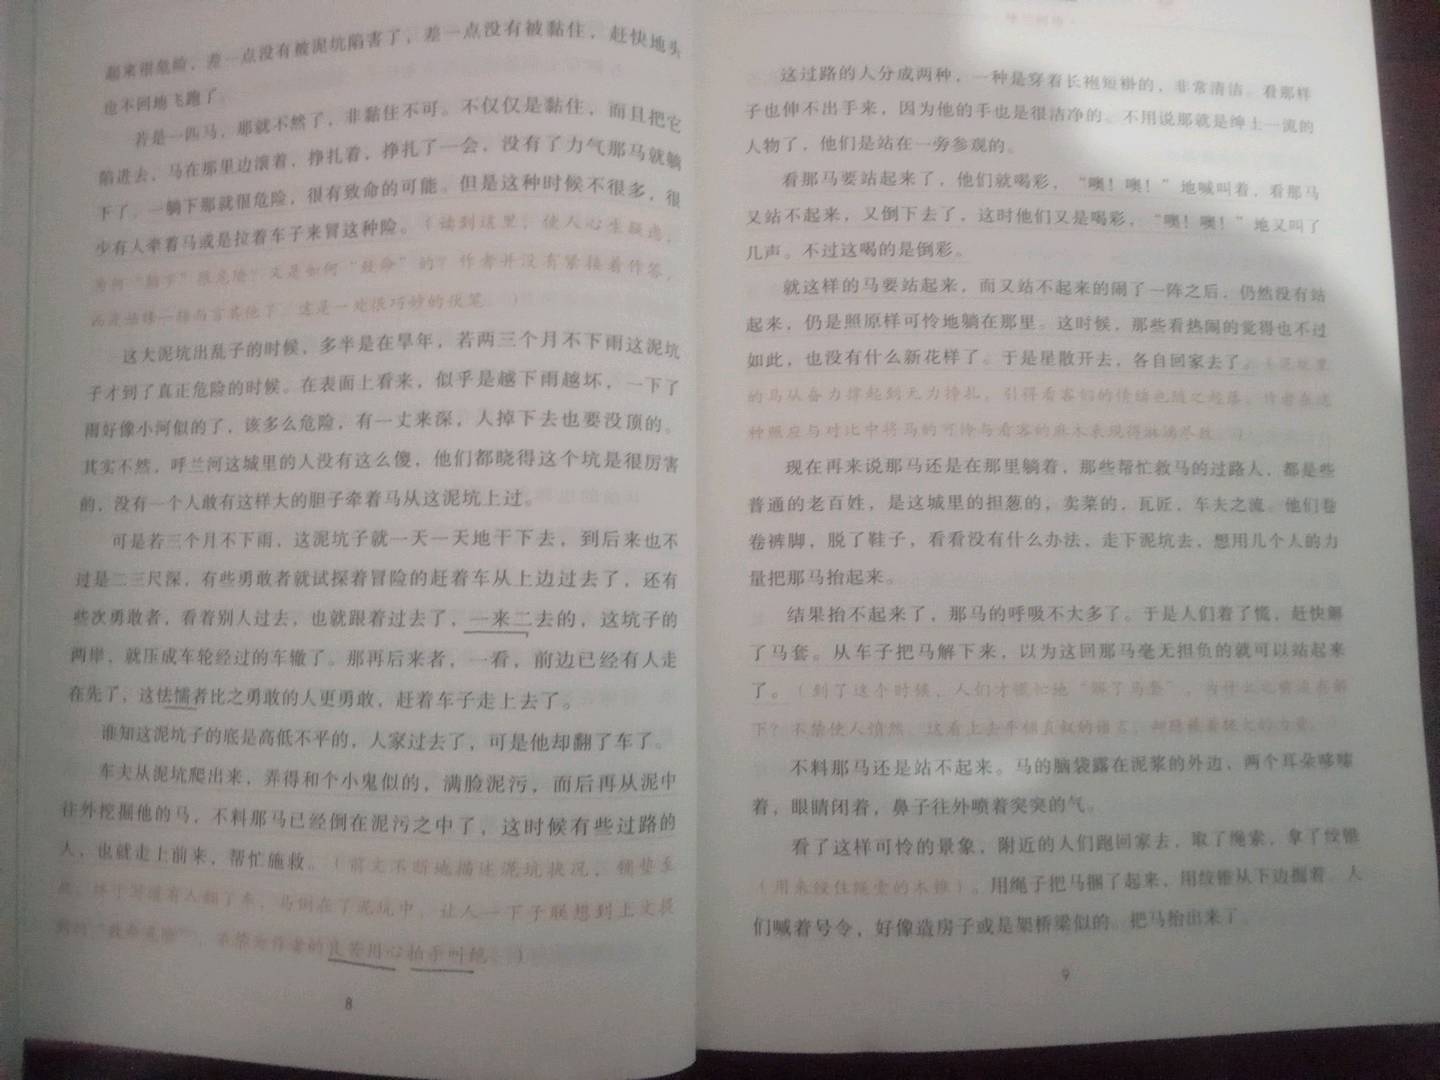 起来很危险，差一点没有被泥坑陷害了，差一点没有被黏住，赶快地头
也不回地飞跑了。
若是一匹马，那就不然了，非黏住不可。不仅仅是黏住，而且把它
陷进去，马在那里边滚着，挣扎着，挣扎了一会，没有了力气那马就躺
下了，一躺下那就很危险，很有致命的可能。但是这种时候不很多，很
少有人牵着马或是拉着车子来冒这种险。（读到这里，使人心生疑虑，
为何“躺下”很危险？又是如何“致命”的？作者并没有紧接着作答，
而是话锋一转与言其他了，这是一处很巧妙的伏笔。）
这大泥坑出乱子的时候，多半是在旱年，若两三个月不下雨这泥坑
子才到了真正危险的时候。在表面上看来，似乎是越下雨越坏，一下了
雨好像小河似的了，该多么危险，有一丈来深，人掉下去也要没顶的。
其实不然，呼兰河这城里的人没有这么傻，他们都晓得这个坑是很厉害
的，没有一个人敢有这样大的胆子牵着马从这泥坑上过。
可是若三个月不下雨，这泥坑子就一天一天地干下去，到后来也不
过是二三尺深，有些勇敢者就试探着冒险的赶着车从上边过去了，还有
些次勇敢者，看着别人过去，也就跟着过去了，一来二去的，这坑子的
两岸，就压成车轮经过的车辙了。那再后来者，一看，前边已经有人走
在先了，这怯懦者比之勇敢的人更勇敢，赶着车子走上去了。
谁知这泥坑子的底是高低不平的，人家过去了，可是他却翻了车了。
车夫从泥坑爬出来，弄得和个小鬼似的，满脸泥污，而后再从泥中
往外挖掘他的马，不料那马已经倒在泥污之中了，这时候有些过路的
人，也就走上前来，帮忙施救。（前文不断地描述泥坑状况，铺垫至
此，终于写道有人翻了车，马倒在了泥坑中，让人一下子联想到上文提
到的“致命危险”，不禁为作者的良苦用心拍手叫绝。）
8
这过路的人分成两种，一种是穿着长袍短褂的，非常清洁。看那样
子也伸不出手来，因为他的手也是很洁净的。不用说那就是绅士一流的
人物了，他们是站在一旁参观的。
看那马要站起来了，他们就喝彩，“噢！噢！”地喊叫着，看那马
又站不起来，又倒下去了，这时他们又是喝彩，“噢！噢！”地又叫了
几声。不过这喝的是倒彩。
就这样的马要站起来，而又站不起来的闹了一阵之后，仍然没有站
起来，仍是照原样可怜地躺在那里。这时候，那些看热闹的觉得也不过
如此，也没有什么新花样了。于是星散开去，各自回家去了。（泥坑里
的马从奋力撑起到无力挣扎，引得看客们的情绪也随之起落，作者在这
种照应与对比中将马的可怜与看客的麻木表现得淋漓尽致。）
现在再来说那马还是在那里躺着，那些帮忙救马的过路人，都是些
普通的老百姓，是这城里的担葱的，卖菜的，瓦匠，车夫之流。他们卷
卷裤脚，脱了鞋子，看看没有什么办法，走下泥坑去，想用几个人的力
量把那马抬起来。
结果抬不起来了，那马的呼吸不大多了。于是人们着了慌，赶快解
了马套。从车子把马解下来，以为这回那马毫无担负的就可以站起来
了。（到了这个时候，人们才慌忙地“解了马套”，为什么之前没有解
下？不禁使人愤然，这看上去平铺直叙的语言，却隐藏着极大的力量。
不料那马还是站不起来。马的脑袋露在泥浆的外边，两个耳朵哆嗦
着，眼睛闭着，鼻子往外喷着突突的气。
看了这样可怜的景象，附近的人们跑回家去，取了绳索，拿了绞锥
（用来绞住绳索的木锥）。用绳子把马捆了起来，用绞锥从下边掘着。人
们喊着号令，好像造房子或是架桥梁似的。把马抬出来了。
9